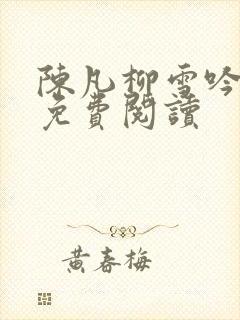 陳凡柳雪吟
免費閱讀
黃春梅